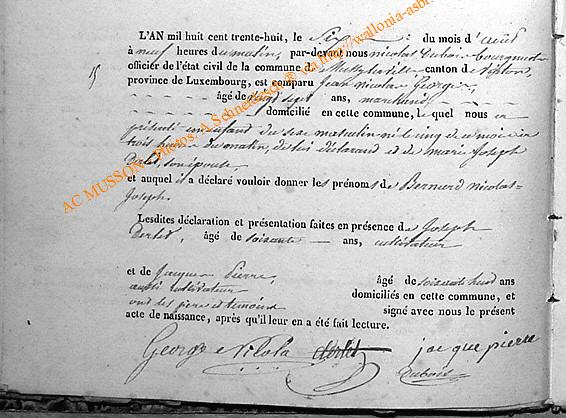 L'AN mil huit cent trente-huit, le Six du mois d'août
à neuf heures du matin, par-devant nous nicolas Dubois Bourgmestre
officier de l'état civil de la commune de canton de
province de Luxembourg, est comparu Jean nicolas George,
âgé de vingt sept ans, marchand,
domicilié en cette commune, lequel nous
présenté un enfant du sexe masculin né le cinq de ce mois à
trois heures du matin, de lui déclarant et de marie Joseph
son épouse,
et auquel il a déclaré vouloir donner les prénoms de Bernard nicolas-
Joseph.
Lesdites déclaration et présentation faites en présence de Joseph
âgé de soixante ans, cultivateur
et de Jacque Pierre, âgé de soixante huit ans
aussi cultivateur domiciliés en cette commune, et
ont les père et témoins signé avec nous le présent
acte de naissance, après qu'il leur en a été fait lecture.
George Nikola jacque pierre
Dubois
AC MUSSON. Photos: A Schneidesch @ via http://wallonia-asb